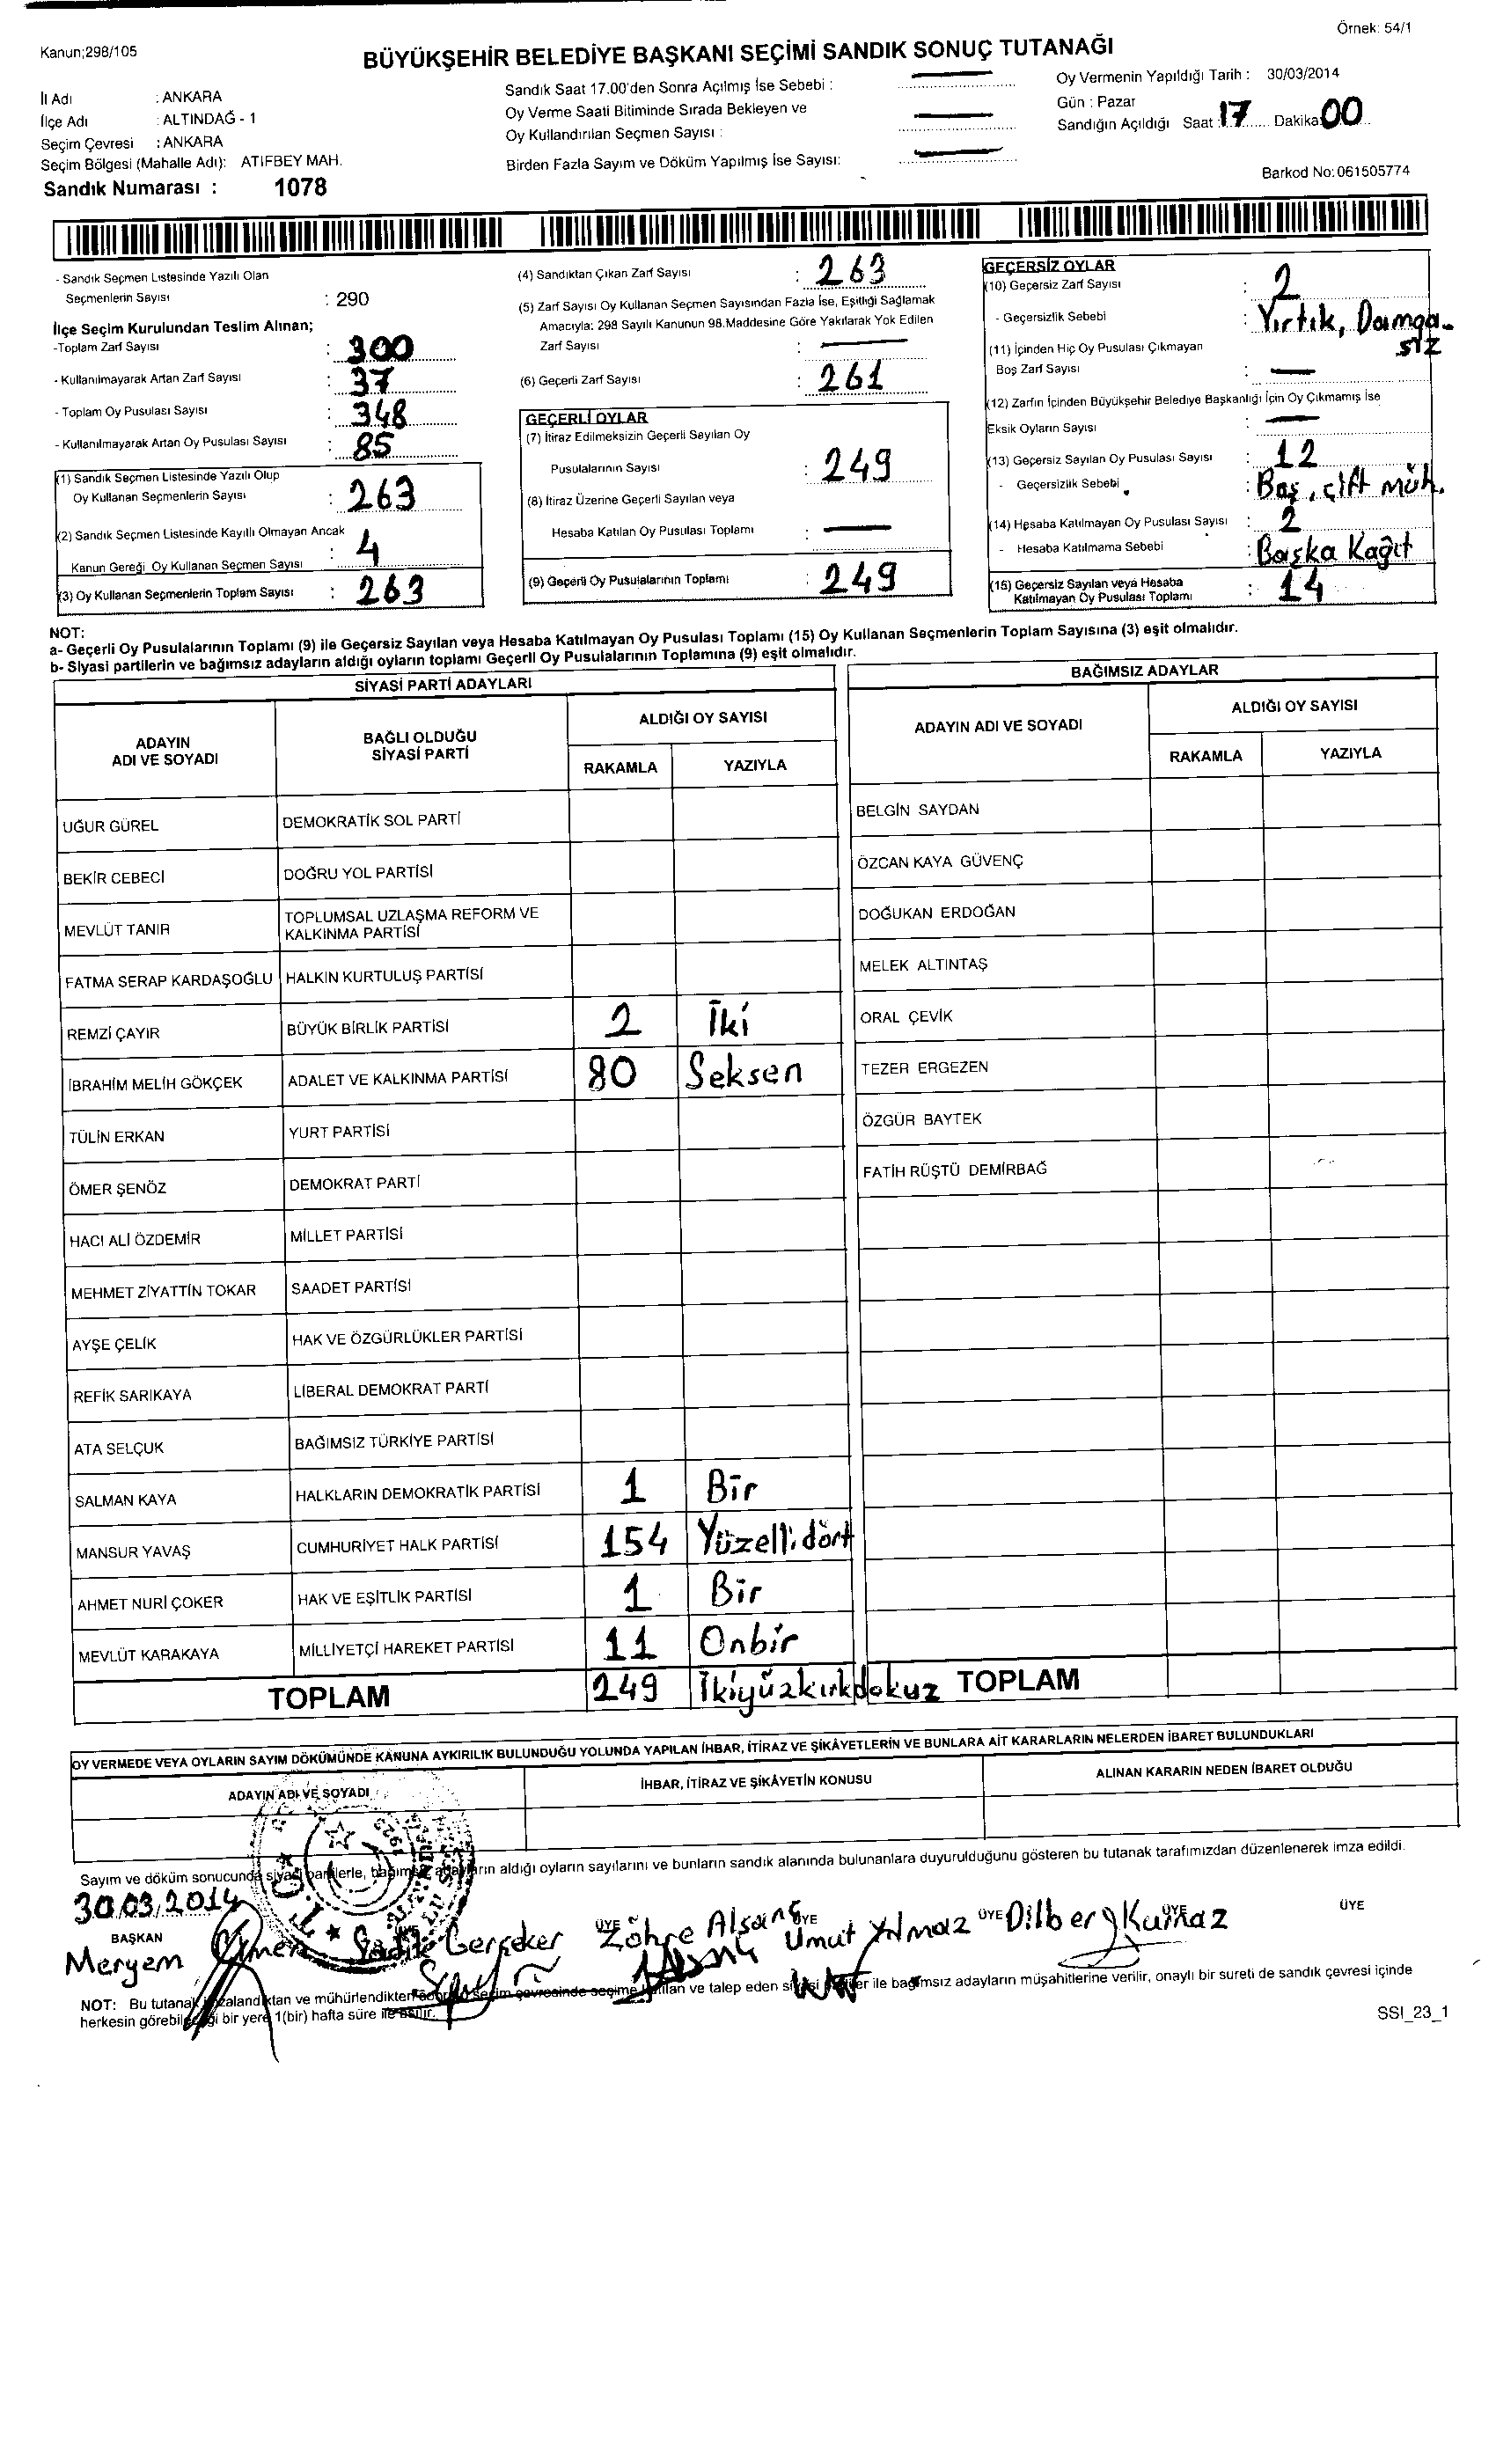 Örnek: 54/1
Kanun;298/105
BÜYÜKŞEHİR BELEDİYE BAŞKANI SEÇİMİ SANDIK SONUÇ TUTANAĞI
İl Adı : ANKARA
İlçe Adı : ALTINDAĞ - 1
Seçim Çevresi : ANKARA
Seçim Bölgesi (Mahalle Adı): ATIFBEY MAH.
Sandık Numarası : 1078
Sandık Saat 17.00'den Sonra Açılmış İse Sebebi :
Oy Verme Saati Bitiminde Sırada Bekleyen ve
Oy Kullandırılan Seçmen Sayısı :
Birden Fazla Sayım ve Döküm Yapılmış İse Sayısı:
Oy Vermenin Yapıldığı Tarih : 30/03/2014
Gün : Pazar
Sandığın Açıldığı Saat : 17 Dakika: 00
Barkod No: 061505774
- Sandık Seçmen Listesinde Yazılı Olan
Seçmenlerin Sayısı : 290
İlçe Seçim Kurulundan Teslim Alınan;
-Toplam Zarf Sayısı : 300
- Kullanılmayarak Artan Zarf Sayısı : 37
- Toplam Oy Pusulası Sayısı : 348
- Kullanılmayarak Artan Oy Pusulası Sayısı : 85
(1) Sandık Seçmen Listesinde Yazılı Olup
Oy Kullanan Seçmenlerin Sayısı : 263
(2) Sandık Seçmen Listesinde Kayıtlı Olmayan Ancak
Kanun Gereği Oy Kullanan Seçmen Sayısı : 4
(3) Oy Kullanan Seçmenlerin Toplam Sayısı : 263
(4) Sandıktan Çıkan Zarf Sayısı : 263
(5) Zarf Sayısı Oy Kullanan Seçmen Sayısından Fazla İse, Eşitliği Sağlamak
Amacıyla: 298 Sayılı Kanunun 98.Maddesine Göre Yakılarak Yok Edilen
Zarf Sayısı :
(6) Geçerli Zarf Sayısı : 261
GEÇERLİ OYLAR
(7) İtiraz Edilmeksizin Geçerli Sayılan Oy
Pusulalarının Sayısı : 249
(8) İtiraz Üzerine Geçerli Sayılan veya
Hesaba Katılan Oy Pusulası Toplamı :
(9) Geçerli Oy Pusulalarının Toplamı : 249
GEÇERSİZ OYLAR
(10) Geçersiz Zarf Sayısı : 2
- Geçersizlik Sebebi : Yırtık, Damga-
sız
(11) İçinden Hiç Oy Pusulası Çıkmayan
Boş Zarf Sayısı :
(12) Zarfın İçinden Büyükşehir Belediye Başkanlığı İçin Oy Çıkmamış İse
Eksik Oyların Sayısı :
(13) Geçersiz Sayılan Oy Pusulası Sayısı : 12
- Geçersizlik Sebebi : Boş, çift müh.
(14) Hesaba Katılmayan Oy Pusulası Sayısı : 2
- Hesaba Katılmama Sebebi : Başka Kağıt
(15) Geçersiz Sayılan veya Hesaba
Katılmayan Oy Pusulası Toplamı : 14
NOT:
a- Geçerli Oy Pusulalarının Toplamı (9) ile Geçersiz Sayılan veya Hesaba Katılmayan Oy Pusulası Toplamı (15) Oy Kullanan Seçmenlerin Toplam Sayısına (3) eşit olmalıdır.
b- Siyasi partilerin ve bağımsız adayların aldığı oyların toplamı Geçerli Oy Pusulalarının Toplamına (9) eşit olmalıdır.
SİYASİ PARTİ ADAYLARI
ADAYIN ADI VE SOYADI BAĞLI OLDUĞU SİYASİ PARTİ ALDIĞI OY SAYISI
RAKAMLA YAZIYLA
UĞUR GÜREL DEMOKRATİK SOL PARTİ
BEKİR CEBECİ DOĞRU YOL PARTİSİ
MEVLÜT TANIR TOPLUMSAL UZLAŞMA REFORM VE
KALKINMA PARTİSİ
FATMA SERAP KARDAŞOĞLU HALKIN KURTULUŞ PARTİSİ
REMZİ ÇAYIR BÜYÜK BİRLİK PARTİSİ 2 İki
İBRAHİM MELİH GÖKÇEK ADALET VE KALKINMA PARTİSİ 80 Seksen
TÜLİN ERKAN YURT PARTİSİ
ÖMER ŞENÖZ DEMOKRAT PARTİ
HACI ALİ ÖZDEMİR MİLLET PARTİSİ
MEHMET ZİYATTİN TOKAR SAADET PARTİSİ
AYŞE ÇELİK HAK VE ÖZGÜRLÜKLER PARTİSİ
REFİK SARIKAYA LİBERAL DEMOKRAT PARTİ
ATA SELÇUK BAĞIMSIZ TÜRKİYE PARTİSİ
SALMAN KAYA HALKLARIN DEMOKRATİK PARTİSİ 1 Bir
MANSUR YAVAŞ CUMHURİYET HALK PARTİSİ 154 Yüzellidört
AHMET NURİ ÇOKER HAK VE EŞİTLİK PARTİSİ 1 Bir
MEVLÜT KARAKAYA MİLLİYETÇİ HAREKET PARTİSİ 11 Onbir
TOPLAM 249 İkiyüzkırkdokuz
BAĞIMSIZ ADAYLAR
ADAYIN ADI VE SOYADI ALDIĞI OY SAYISI
RAKAMLA YAZIYLA
BELGİN SAYDAN
ÖZCAN KAYA GÜVENÇ
DOĞUKAN ERDOĞAN
MELEK ALTINTAŞ
ORAL ÇEVİK
TEZER ERGEZEN
ÖZGÜR BAYTEK
FATİH RÜŞTÜ DEMİRBAĞ
TOPLAM
OY VERMEDE VEYA OYLARIN SAYIM DÖKÜMÜNDE KANUNA AYKIRILIK BULUNDUĞU YOLUNDA YAPILAN İHBAR, İTİRAZ VE ŞİKÂYETLERİN VE BUNLARA AİT KARARLARIN NELERDEN İBARET BULUNDUKLARI
ADAYIN ADI VE SOYADI İHBAR, İTİRAZ VE ŞİKÂYETİN KONUSU ALINAN KARARIN NEDEN İBARET OLDUĞU
Sayım ve döküm sonucunda siyasi partilerle, bağımsız adayların aldığı oyların sayılarını ve bunların sandık alanında bulunanlara duyurulduğunu gösteren bu tutanak tarafımızdan düzenlenerek imza edildi.
30.03.2014
BAŞKAN ÜYE ÜYE ÜYE ÜYE ÜYE
Meryem Gerçeker Zöhre Umut Yılmaz Dilber
NOT: Bu tutanak imzalandıktan ve mühürlendikten sonra seçim çevresinde seçime katılan ve talep eden siyasi partiler ile bağımsız adayların müşahitlerine verilir, onaylı bir sureti de sandık çevresi içinde
herkesin görebileceği bir yere 1(bir) hafta süre ile asılır.
SSI_23_1